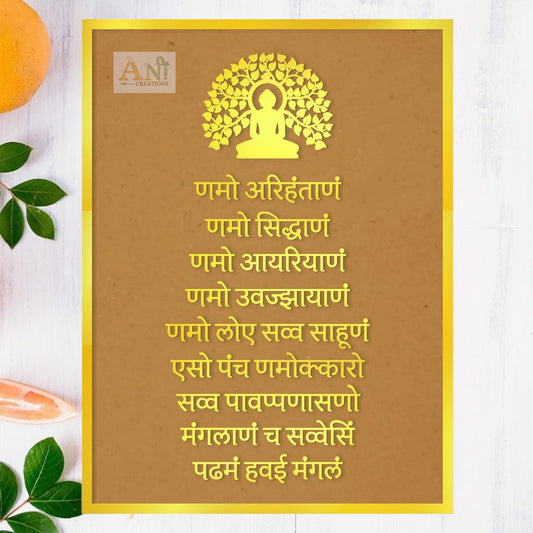 ANI
CREATIONS
णमो अरिहंताणं
णमो सिद्धाणं
णमो आयरियाणं
णमो उवज्झायाणं
णमो लोए सव्व साहूणं
एसो पंच णमोक्कारो
सव्व पावप्पणासणो
मंगलाणं च सव्वेसिं
पढमं हवई मंगलं